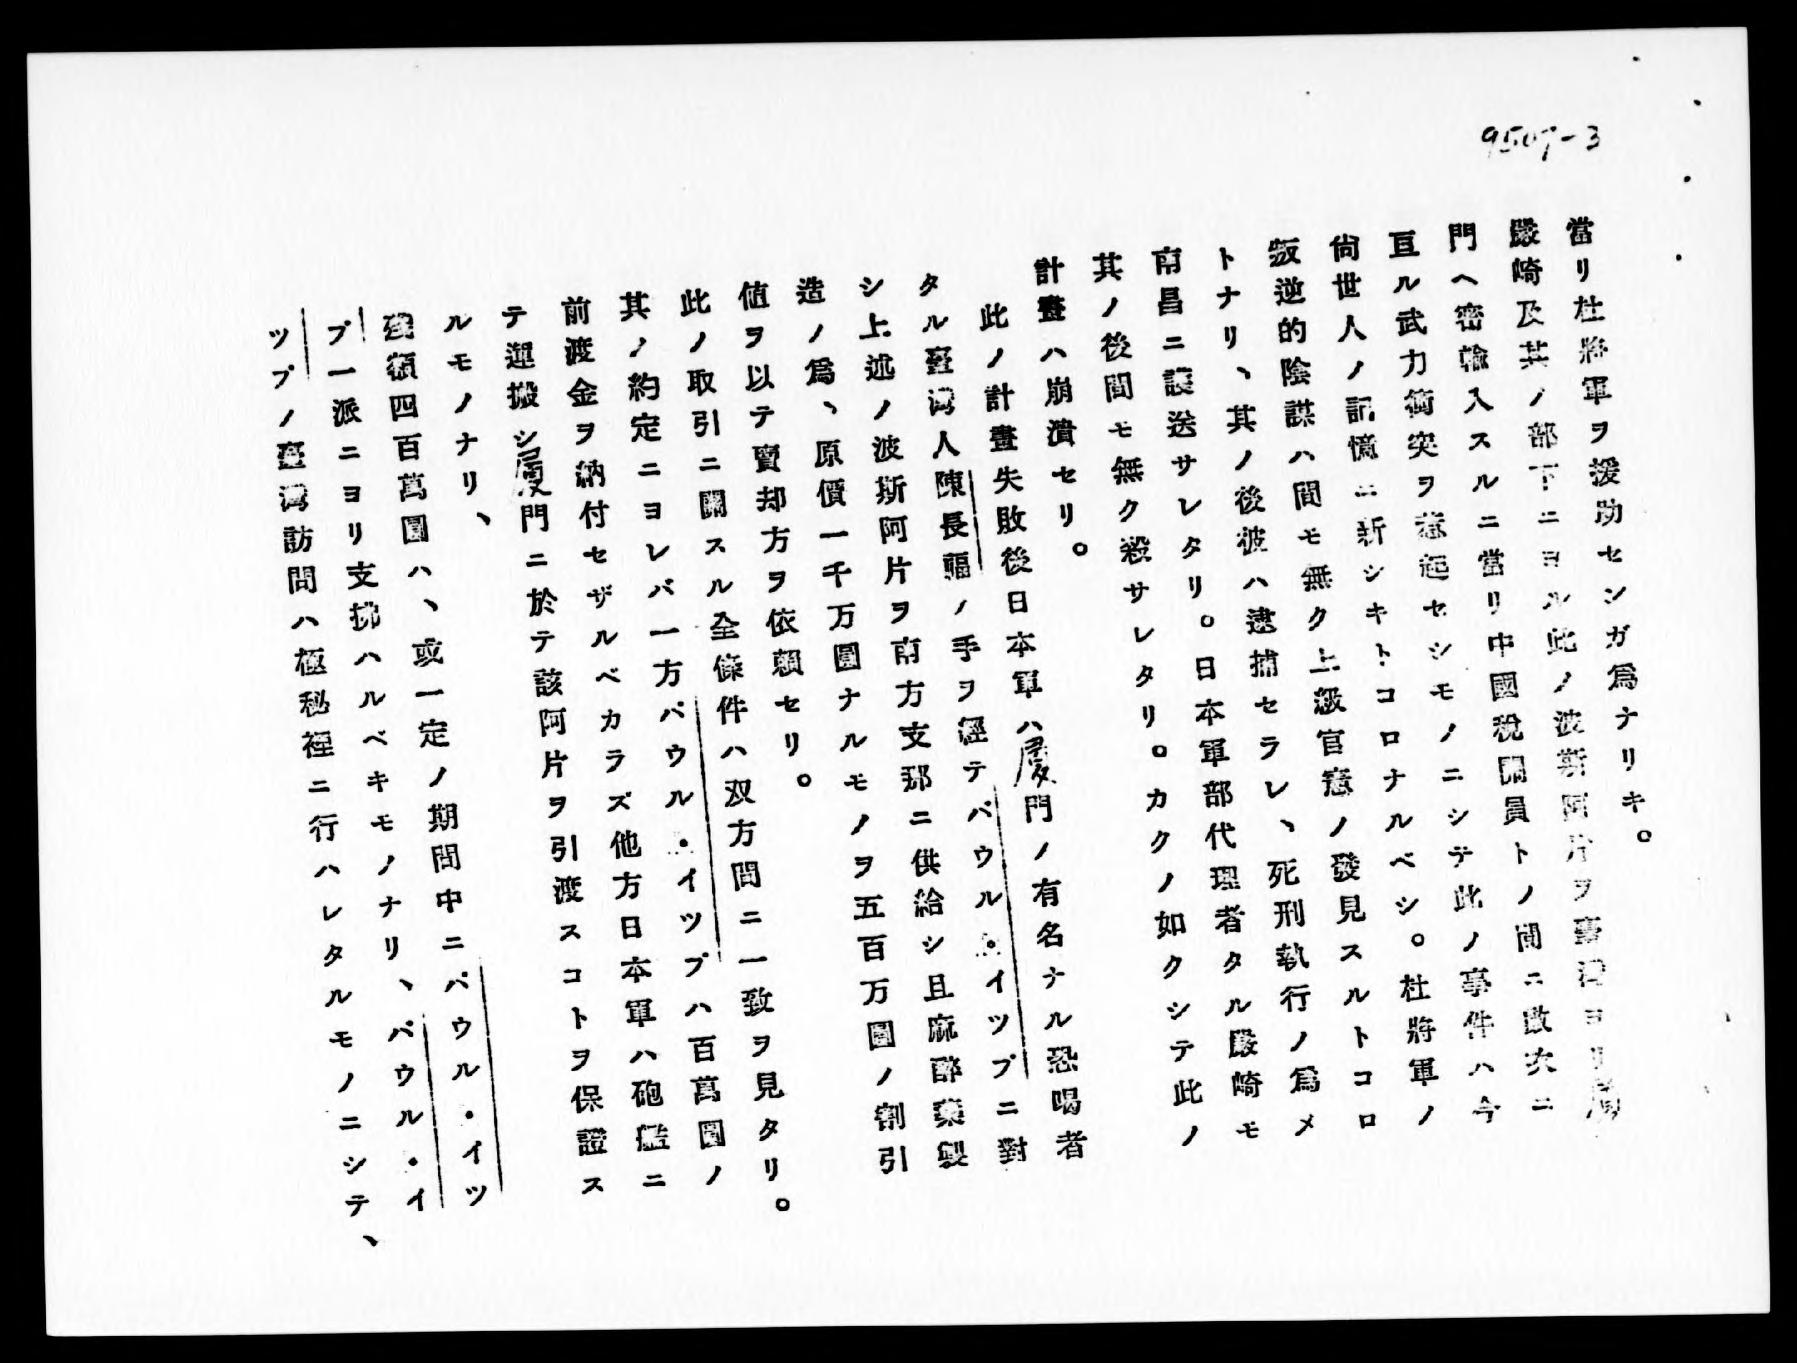 9507-3
當リ杜將軍ヲ援助センガ爲ナリキ。
嚴崎及其ノ部下ニヨル此ノ波斯阿片ヲ臺灣ヨリ廈
門ヘ密輸入スルニ當リ中國稅關員トノ間ニ數次ニ
亘ル武力衝突ヲ惹起セシモノニシテ此ノ事件ハ今
尙世人ノ記憶ニ新シキトコロナルベシ。杜將軍ノ
叛逆的陰謀ハ間モ無ク上級官憲ノ發見スルトコロ
トナリ、其ノ後彼ハ逮捕セラレ、死刑執行ノ爲メ
南昌ニ護送サレタリ。日本軍部代理者タル嚴崎モ
其ノ後間モ無ク殺サレタリ。カクノ如クシテ此ノ
計畫ハ崩潰セリ。
此ノ計畫失敗後日本軍ハ廈門ノ有名ナル恐喝者
タル臺灣人陳長福ノ手ヲ經テパウル・イツプニ對
シ上述ノ波斯阿片ヲ南方支那ニ供給シ且麻醉藥製
造ノ爲、原價一千万圓ナルモノヲ五百万圓ノ割引
値ヲ以テ賣却方ヲ依賴セリ。
此ノ取引ニ關スル全條件ハ双方間ニ一致ヲ見タリ。
其ノ約定ニヨレバ一方パウル・イツプハ百萬圓ノ
前渡金ヲ納付セザルベカラズ他方日本軍ハ砲艦ニ
テ運搬シ廈門ニ於テ該阿片ヲ引渡スコトヲ保證ス
ルモノナリ、
殘額四百萬圓ハ、或一定ノ期間中ニパウル・イツ
プ一派ニヨリ支拂ハルベキモノナリ、パウル・イ
ツプノ臺灣訪問ハ極秘裡ニ行ハレタルモノニシテ、